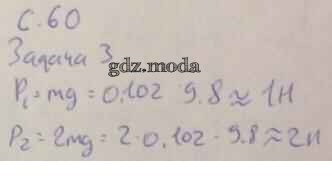 С.60
Задача 3
gdz.moda
P₁=mg=0.102 9.8≈1Н
P₂=2mg=2·0.102·9.8≈2Н